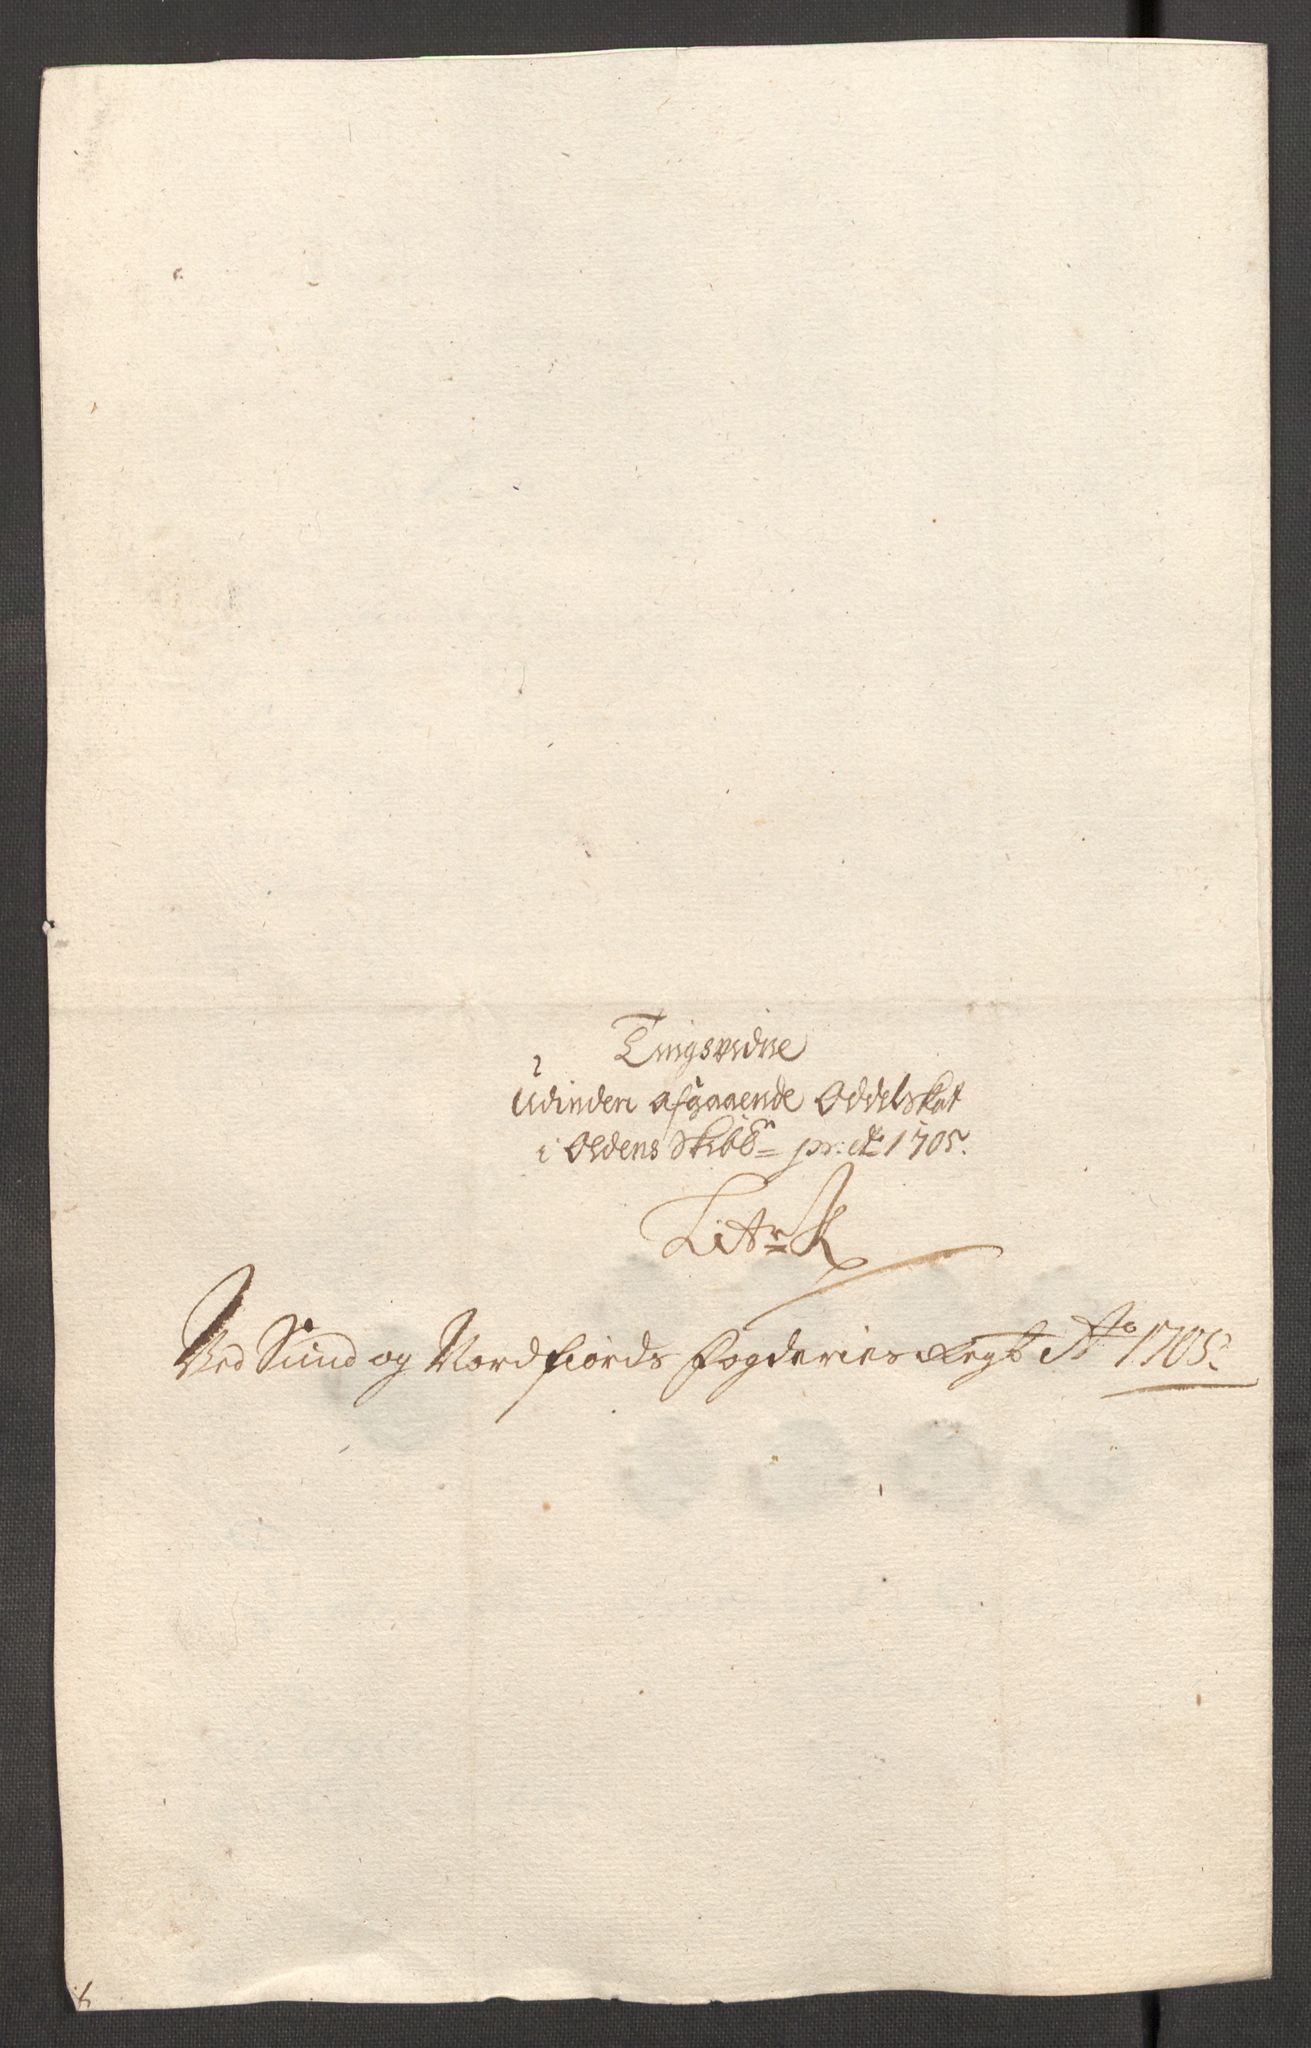 Tingsvidne
Udinden afgaaende Oddelskat
i Oldens Skibbr: pr: Ao 1705.
Litr K
Ved Sund og Nordfiords Fogderies Regb Ao 1705.